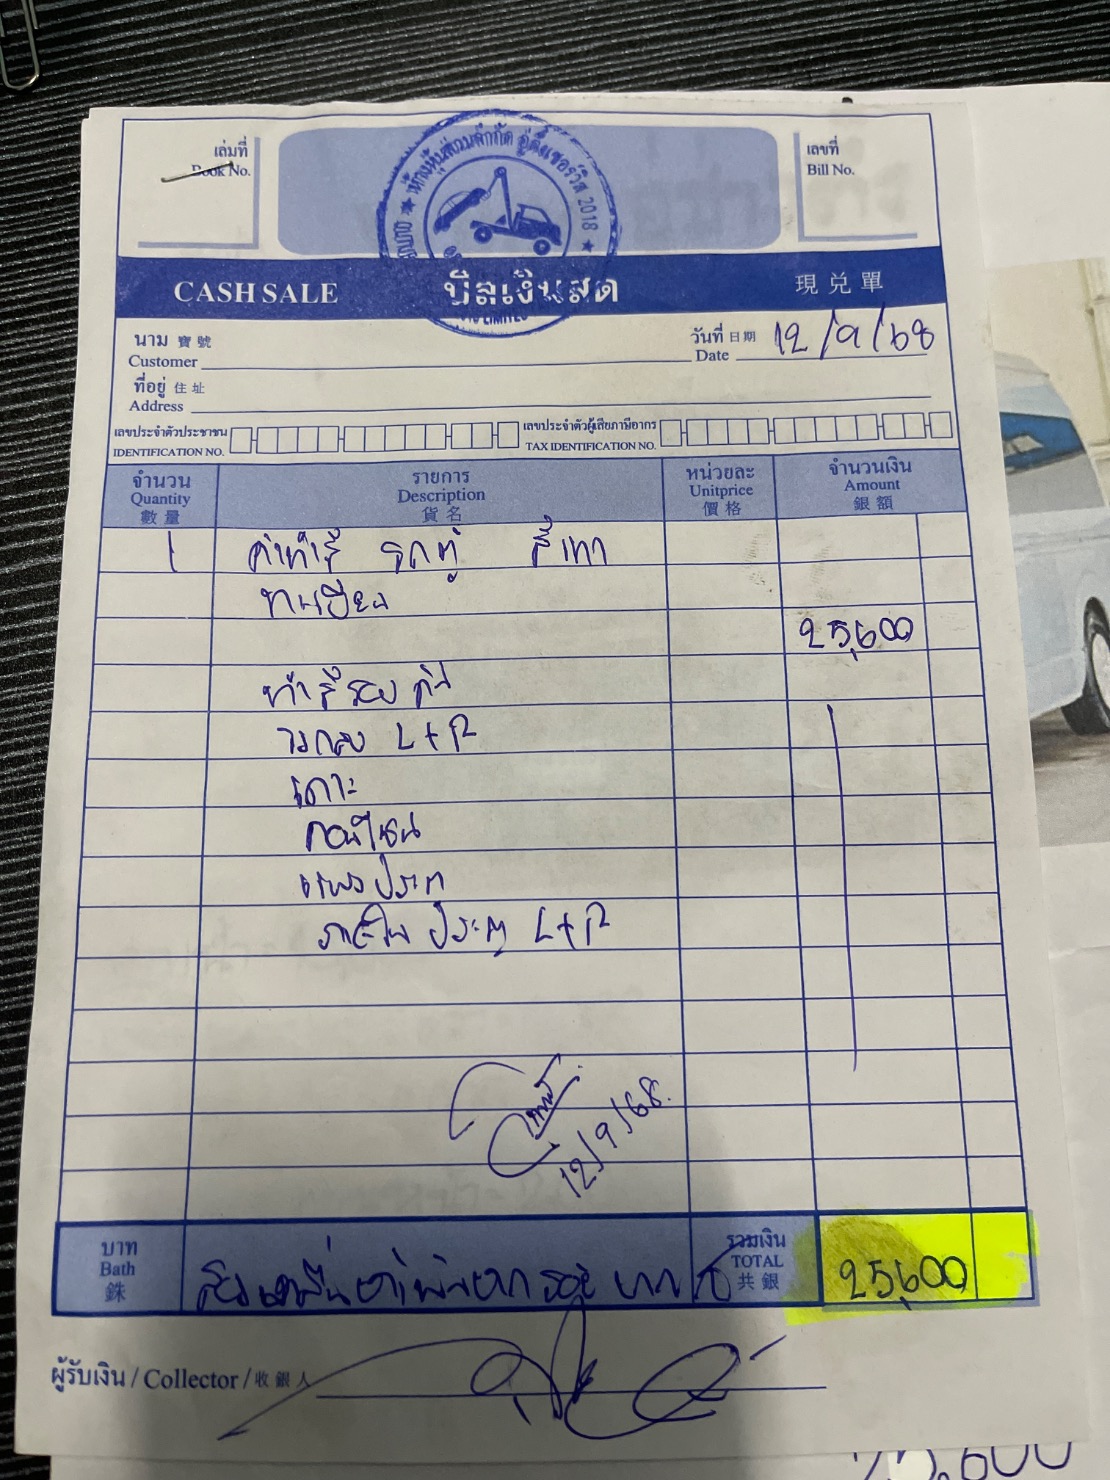 ห้างหุ้นส่วนจำกัด อู่ตี๋เซอร์วิส 2018
เล่มที่
Book No.
เลขที่
Bill No.
CASH SALE บิลเงินสด 現兑單
นาม 寶號
Customer
วันที่ 日期
Date 12/9/68
ที่อยู่ 住址
Address
เลขประจำตัวประชาชน
IDENTIFICATION NO.
เลขประจำตัวผู้เสียภาษีอากร
TAX IDENTIFICATION NO.
จำนวน รายการ หน่วยละ จำนวนเงิน
Quantity Description Unitprice Amount
數量 貨名 價格 銀額
1 ค่าทำสี รถตู้ สีเทา
ทะเบียน
25,600
ทำสีรอบคัน
L+R
เบาะ
คอนโซน
แผงประตู
ภายใน ประตู L+R
12/9/68.
บาท
Bath
銖
สองหมื่นห้าพันหกร้อยบาท
รวมเงิน
TOTAL
共銀
25,600
ผู้รับเงิน / Collector / 收銀人
25,600